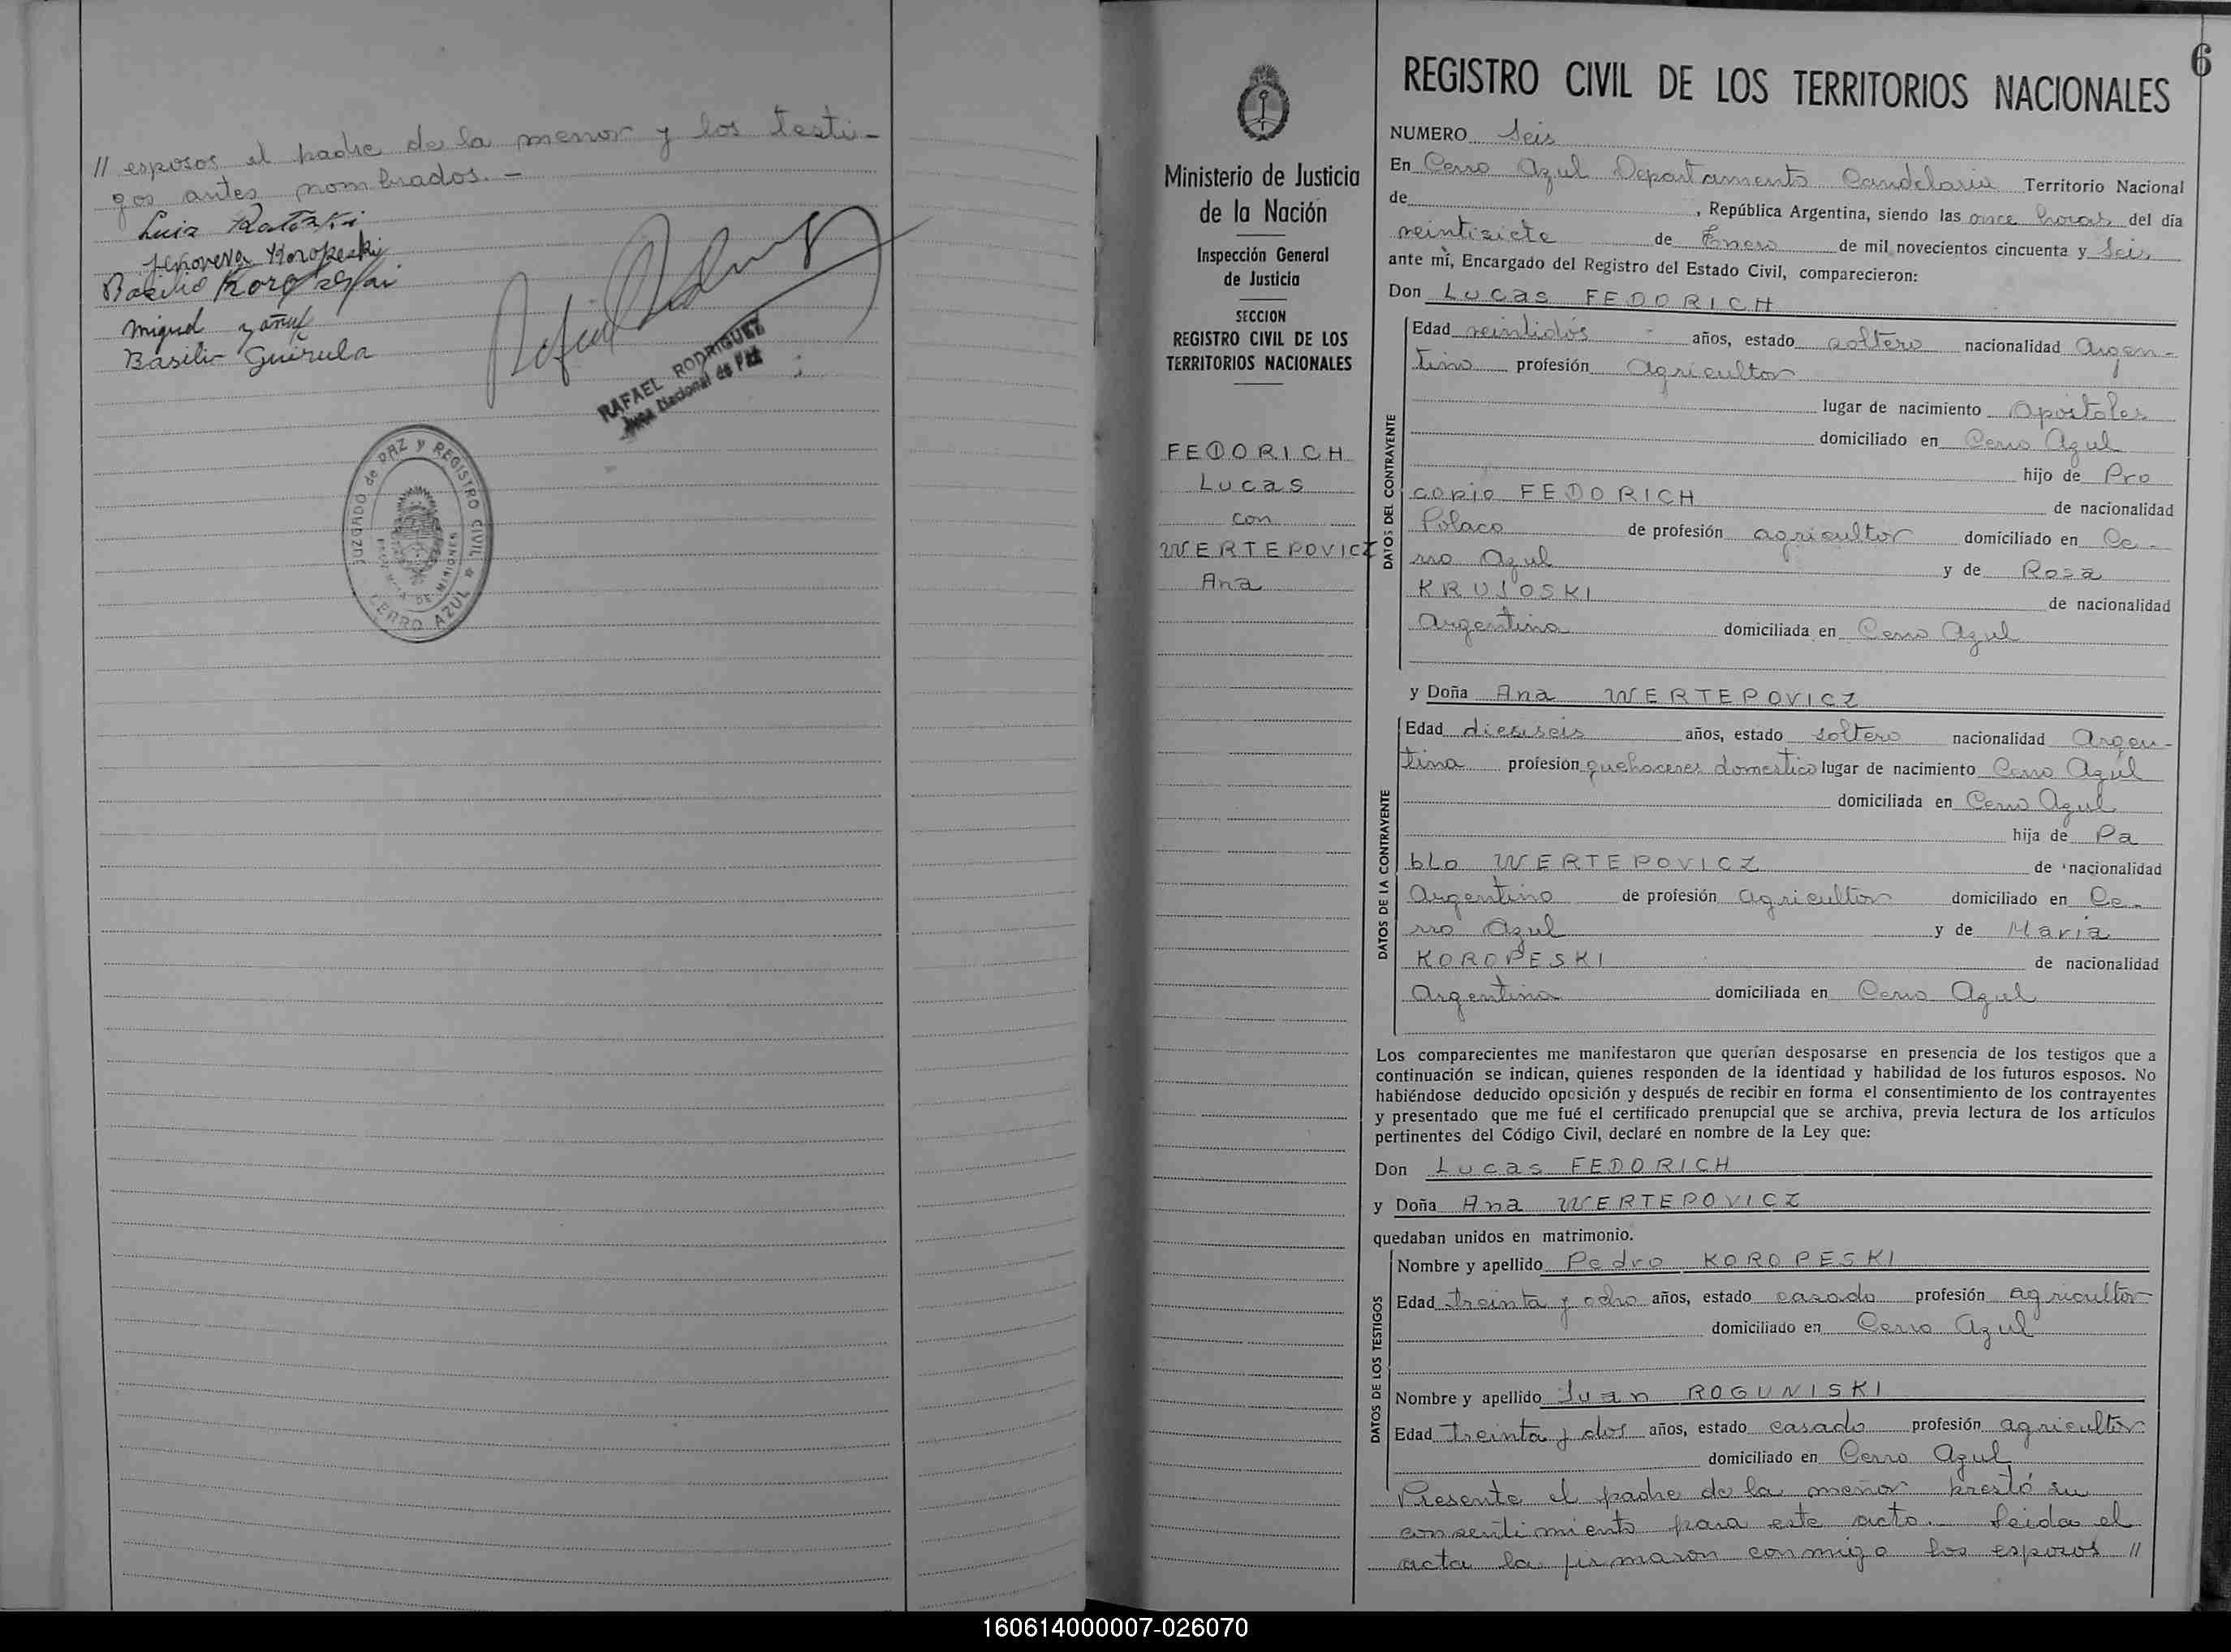 // esposos el padre de la menor y los testi-
gos antes nombrados. -
Luis
Jenoveva Koropeski
Basilio
Miguel
Basilio Guirula
RAFAEL RODRIGUEZ
Juez Nacional de Paz
JUZGADO de PAZ y REGISTRO CIVIL
CERRO AZUL
6
Ministerio de Justicia
de la Nación
Inspección General
de Justicia
SECCION
REGISTRO CIVIL DE LOS
TERRITORIOS NACIONALES
FEDORICH
Lucas
con
WERTEPOVICZ
Ana
REGISTRO CIVIL DE LOS TERRITORIOS NACIONALES
NUMERO Seis
En Cerro Azul Departamento Candelaria Territorio Nacional
de , República Argentina, siendo las once horas del día
veintisiete de Enero de mil novecientos cincuenta y Seis
ante mí, Encargado del Registro del Estado Civil, comparecieron:
Don Lucas FEDORICH
DATOS DEL CONTRAYENTE
Edad veintidós años, estado soltero nacionalidad Argen-
tino profesión Agricultor
lugar de nacimiento Apóstoles
domiciliado en Cerro Azul
hijo de Pro
copio FEDORICH de nacionalidad
Polaco de profesión agricultor domiciliado en Ce-
rro Azul y de Rosa
KRUJOSKI de nacionalidad
Argentina domiciliada en Cerro Azul
y Doña Ana WERTEPOVICZ
DATOS DE LA CONTRAYENTE
Edad dieciseis años, estado soltero nacionalidad Argen-
tina profesión quehaceres domestico lugar de nacimiento Cerro Azul
domiciliada en Cerro Azul
hija de Pa
blo WERTEPOVICZ de nacionalidad
Argentino de profesión Agricultor domiciliado en Ce-
rro Azul y de María
KOROPESKI de nacionalidad
Argentina domiciliada en Cerro Azul
Los comparecientes me manifestaron que querían desposarse en presencia de los testigos que a
continuación se indican, quienes responden de la identidad y habilidad de los futuros esposos. No
habiéndose deducido oposición y después de recibir en forma el consentimiento de los contrayentes
y presentado que me fué el certificado prenupcial que se archiva, previa lectura de los artículos
pertinentes del Código Civil, declaré en nombre de la Ley que:
Don Lucas FEDORICH
y Doña Ana WERTEPOVICZ
quedaban unidos en matrimonio.
DATOS DE LOS TESTIGOS
Nombre y apellido Pedro KOROPESKI
Edad treinta y ocho años, estado casado profesión agricultor
domiciliado en Cerro Azul
Nombre y apellido Juan ROGUNISKI
Edad treinta y dos años, estado casado profesión agricultor
domiciliado en Cerro Azul
Presente el padre de la menor prestó su
consentimiento para este acto. Leida el
acta la firmaron conmigo los esposos //
160614000007-026070